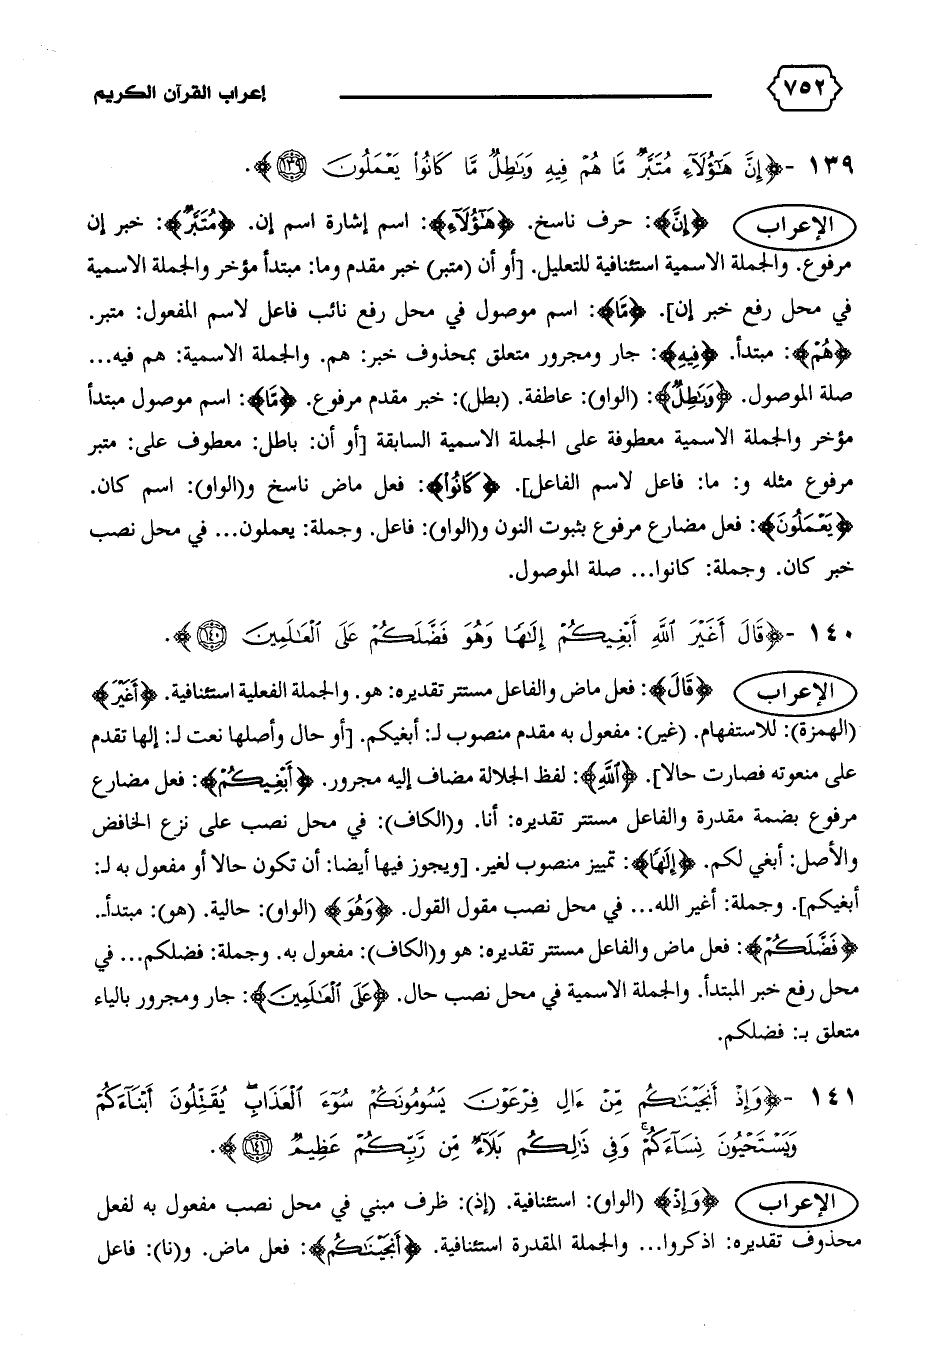 ٧٥٢ إعراب القرآن الكريم
١٣٩ - ﴿إِنَّ هَٰٓؤُلَآءِ مُتَبَّرٌ مَّا هُمْ فِيهِ وَبَٰطِلٌ مَّا كَانُوا۟ يَعْمَلُونَ ١٣٩﴾.
الإعراب ﴿إِنَّ﴾: حرف ناسخ. ﴿هَٰٓؤُلَآءِ﴾: اسم إشارة اسم إن. ﴿مُتَبَّرٌ﴾: خبر إن
مرفوع. والجملة الاسمية استئنافية للتعليل. [أو أن (متبر) خبر مقدم وما: مبتدأ مؤخر والجملة الاسمية
في محل رفع خبر إن]. ﴿مَّا﴾: اسم موصول في محل رفع نائب فاعل لاسم المفعول: متبر.
﴿هُمْ﴾: مبتدأ. ﴿فِيهِ﴾: جار ومجرور متعلق بمحذوف خبر: هم. والجملة الاسمية: هم فيه...
صلة الموصول. ﴿وَبَٰطِلٌ﴾: (الواو): عاطفة. (بطل): خبر مقدم مرفوع. ﴿مَّا﴾: اسم موصول مبتدأ
مؤخر والجملة الاسمية معطوفة على الجملة الاسمية السابقة [أو أن: باطل: معطوف على: متبر
مرفوع مثله و: ما: فاعل لاسم الفاعل]. ﴿كَانُوا۟﴾: فعل ماض ناسخ و(الواو): اسم كان.
﴿يَعْمَلُونَ﴾: فعل مضارع مرفوع بثبوت النون و(الواو): فاعل. وجملة: يعملون... في محل نصب
خبر كان. وجملة: كانوا... صلة الموصول.
١٤٠ - ﴿قَالَ أَغَيْرَ ٱللَّهِ أَبْغِيكُمْ إِلَٰهًا وَهُوَ فَضَّلَكُمْ عَلَى ٱلْعَٰلَمِينَ ١٤٠﴾.
الإعراب ﴿قَالَ﴾: فعل ماض والفاعل مستتر تقديره: هو. والجملة الفعلية استئنافية. ﴿أَغَيْرَ﴾
(الهمزة): للاستفهام. (غير): مفعول به مقدم منصوب لـ: أبغيكم. [أو حال وأصلها نعت لـ: إلها تقدم
على منعوته فصارت حالا]. ﴿ٱللَّهِ﴾: لفظ الجلالة مضاف إليه مجرور. ﴿أَبْغِيكُمْ﴾: فعل مضارع
مرفوع بضمة مقدرة والفاعل مستتر تقديره: أنا. و(الكاف): في محل نصب على نزع الخافض
والأصل: أبغي لكم. ﴿إِلَٰهًا﴾: تمييز منصوب لغير. [ويجوز فيها أيضا: أن تكون حالا أو مفعول به لـ:
أبغيكم]. وجملة: أغير الله... في محل نصب مقول القول. ﴿وَهُوَ﴾ (الواو): حالية. (هو): مبتدأ..
﴿فَضَّلَكُمْ﴾: فعل ماض والفاعل مستتر تقديره: هو و(الكاف): مفعول به. وجملة: فضلكم... في
محل رفع خبر المبتدأ. والجملة الاسمية في محل نصب حال. ﴿عَلَى ٱلْعَٰلَمِينَ﴾: جار ومجرور بالياء
متعلق بـ: فضلكم.
١٤١ - ﴿وَإِذْ أَنجَيْنَٰكُم مِّنْ ءَالِ فِرْعَوْنَ يَسُومُونَكُمْ سُوٓءَ ٱلْعَذَابِ ۖ يُقَتِّلُونَ أَبْنَآءَكُمْ
وَيَسْتَحْيُونَ نِسَآءَكُمْ ۚ وَفِى ذَٰلِكُم بَلَآءٌ مِّن رَّبِّكُمْ عَظِيمٌ ١٤١﴾.
الإعراب ﴿وَإِذْ﴾ (الواو): استئنافية. (إذ): ظرف مبني في محل نصب مفعول به لفعل
محذوف تقديره: اذكروا... والجملة المقدرة استئنافية. ﴿أَنجَيْنَٰكُم﴾: فعل ماض. و(نا): فاعل